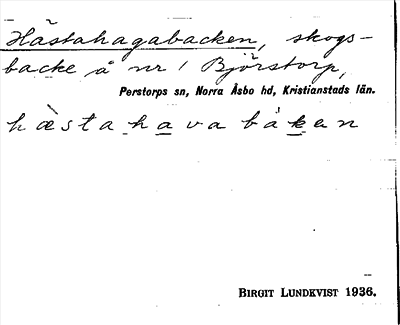 Hästahagabacken, skogs-
backe å nr 1 Björstorp,
Perstorps sn, Norra Åsbo hd, Kristianstads län.
hæ̀stahava bákan
BIRGIT LUNDKVIST 1936.